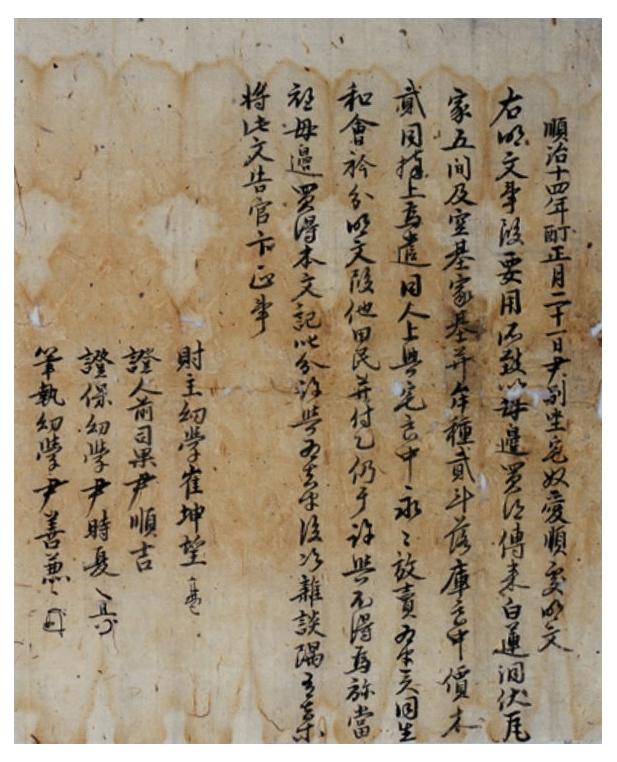 順治十四年丁酉正月二十一日尹副坐宅奴愛順處明文
右明文事段要用所致以母邊買得傳來白蓮洞伏瓦
家五間及空基家基幷牟種貳斗落庫乙中價木
貳同捧上爲遣同人上典宅亦中永永放賣爲乎矣同生
和會衿分明文段他田民幷付乙仍于許與不得爲旀當
祖母邊買得本文記以分許與爲去乎後次雜談隅有去等
將此文告官卞正事
財主幼學崔坤望
證人前司果尹順吉
證保幼學尹時髮
筆執幼學尹善兼